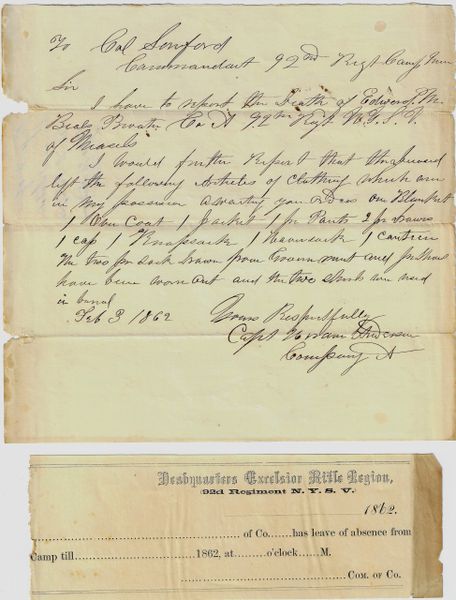 To Col Sanford
Commandant 92nd Regt Camp
Sir
I have to report the Death of Edward M.
Beals Private Co A 92nd Regt N.Y.S.V.
of Measels
I would further Report that the deceased
left the following Articles of Clothing which are
in my possession awaiting your orders one Blanket
1 Over Coat 1 Jacket 1 pr Pants 2 pr drawers
1 cap 1 Knapsack 1 Haversack 1 canteen
The two pr Sock drawn from Government and pr shoes
have been worn out and the two shirts are used
in burial
Feb 3 1862 Yours Respectfully
Capt Hiram Anderson
Company A
Headquarters Excelsior Rifle Legion,
92d Regiment N. Y. S. V.
1862.
of Co. has leave of absence from
Camp till 1862, at o'clock M.
Com. of Co.